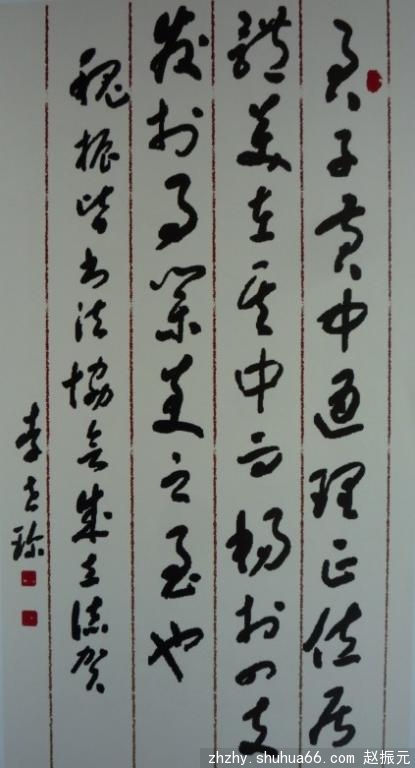 君子黄中通理正位居
體美在其中而暢於四支
發於事業美之至也
魏振皆書法協會成立誌賀
李
zhzhy.shuhua66.com 赵振元